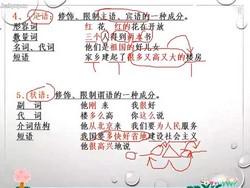 4、(定语)：修饰、限制主语、宾语的一种成分。
形容词 红 花 红的花在开放
数量词 三个人得到 本书
名词、代词 他们是祖国的好儿女
短语 家乡建起了很多又高又大的楼房
5、(状语)：修饰、限制谓语的一种成分。
副 词 他刚 来 我很好
代 词 楼多么高 你这么说
介词结构 他从北京来 我们要为人民服务
短语 我国要多快好省地建设社会主义
他很高兴地说